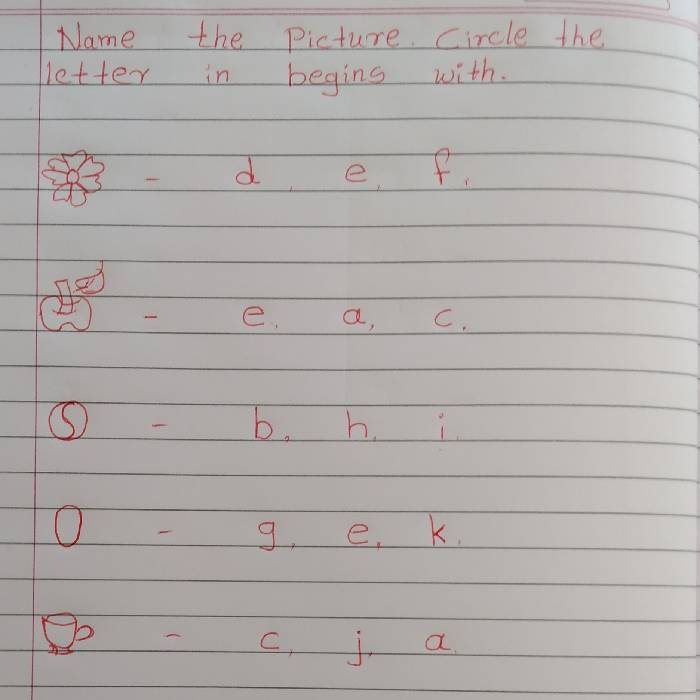 Name the Picture. Circle the
letter in begins with.
- d, e, f.
- e, a, c.
- b, h, i
- g, e, k.
- c, j, a.